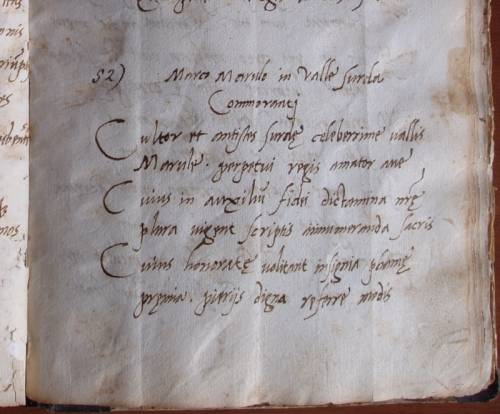 52) Marco Marulo in Valle surda
Commoranti
Cultor et antistes surdę celeberrime vallis
Marule. perpetui regis amator ave
Cuius in auxiliũ fidei dictamina nrẽ
plura vigent scriptis innumeranda sacris
Cuius honoratę volitant insignia phamę
pręmia. pierijs digna referre modis